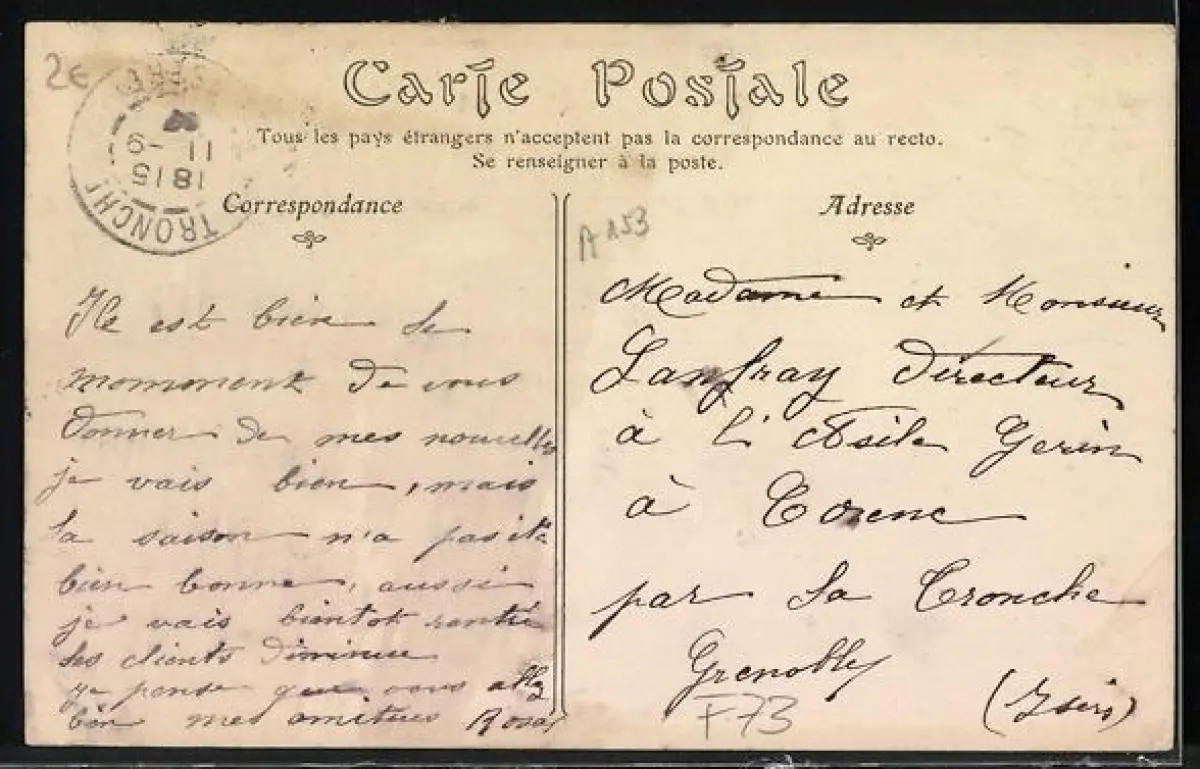 2€
Carte Postale
Tous les pays étrangers n'acceptent pas la correspondance au recto.
Se renseigner à la poste.
TRONCHE
1815
11 -9
Correspondance
Il est bien le
momment de vous
donner de mes nouvelles
je vais bien, mais
la saison n'a pas ité
bien bonne, aussi
je vais bientot rentré
les clients diminue
je pense que vous allez
bien mes amitiers Rosa
A 153
Adresse
Madame et Monsieur
Lanfray Directeur
à l'Asile Gerin
à Corenc
par la Tronche
Grenoble
(Isère)
F73